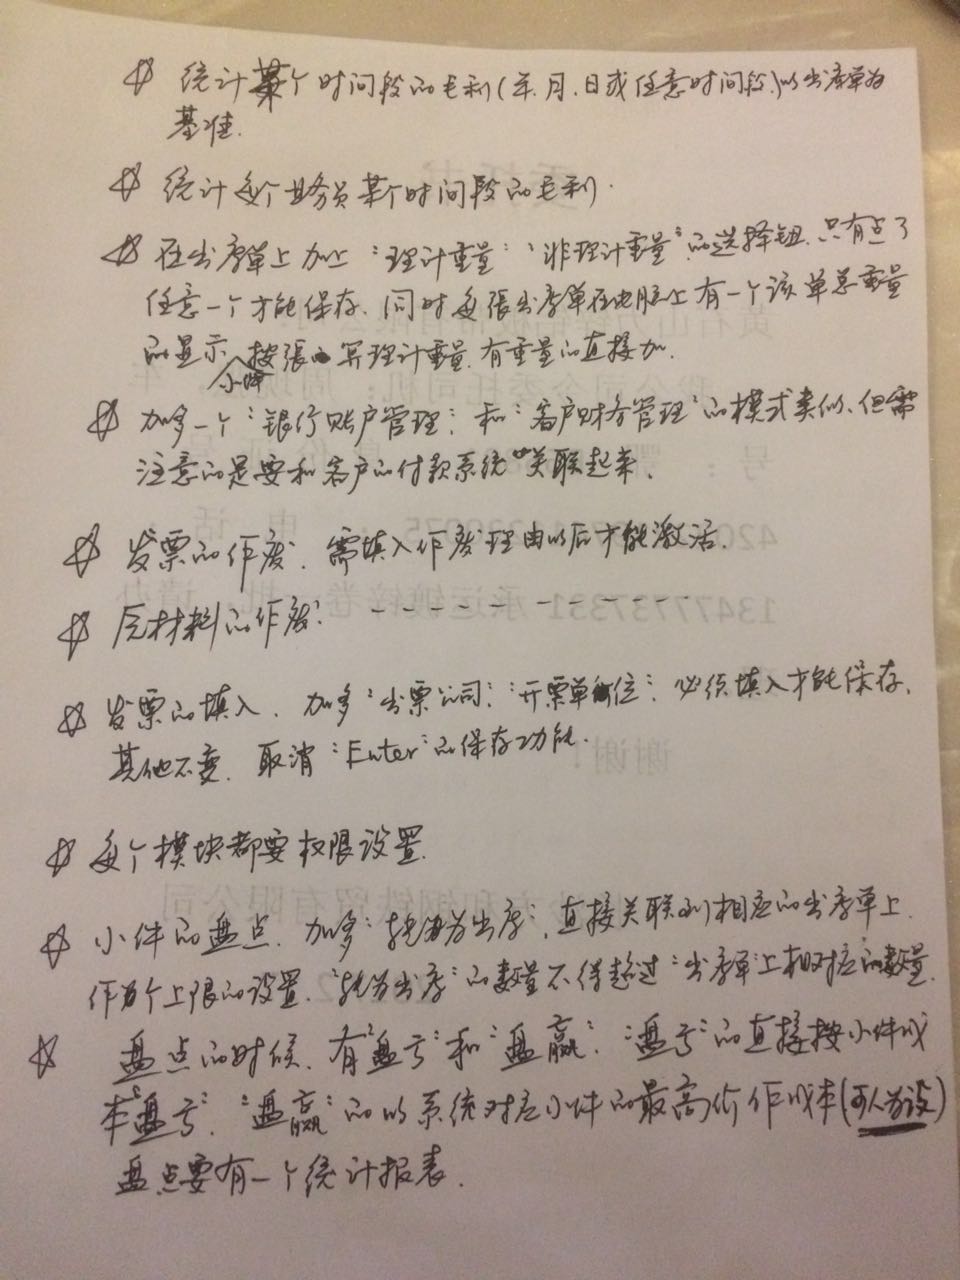 ☆ 统计某个时间段的毛利(年.月.日或任意时间段)以出库单为
基准.
☆ 统计每个业务员某个时间段的毛利.
☆ 在出库单上加上"理计重量"、"非理计重量"的选择钮.只有点了
任意一个才能保存.同时每張出库单在电脑上有一个该单总重量
的显示.小件按張的算理计重量.有重量的直接加.
☆ 加多一个"银行账户管理"和"客户财务管理"的模式类似、但需
注意的是要和客户的付款系统关联起来.
☆ 发票的作废.需填入作废理由以后才能激活.
☆ 原材料的作废: - - - - - - - - - - - -
☆ 发票的填入.加多"出票公司"、"开票单位"、必须填入才能保存.
其他不变.取消"Enter"的保存功能.
☆ 每个模块都要权限设置.
☆ 小件的盘点.加多"转为出库".直接关联到相应的出库单上.
作为个上限的设置."转为出库"的数量不得超过"出库单"上相对应的数量.
☆ 盘点的时候.有"盘亏"和"盘赢"."盘亏"的直接按小件成
本"盘亏"."盘赢"的以系统对应小件的最高价作成本(可人为设)
盘点要有一个统计报表.